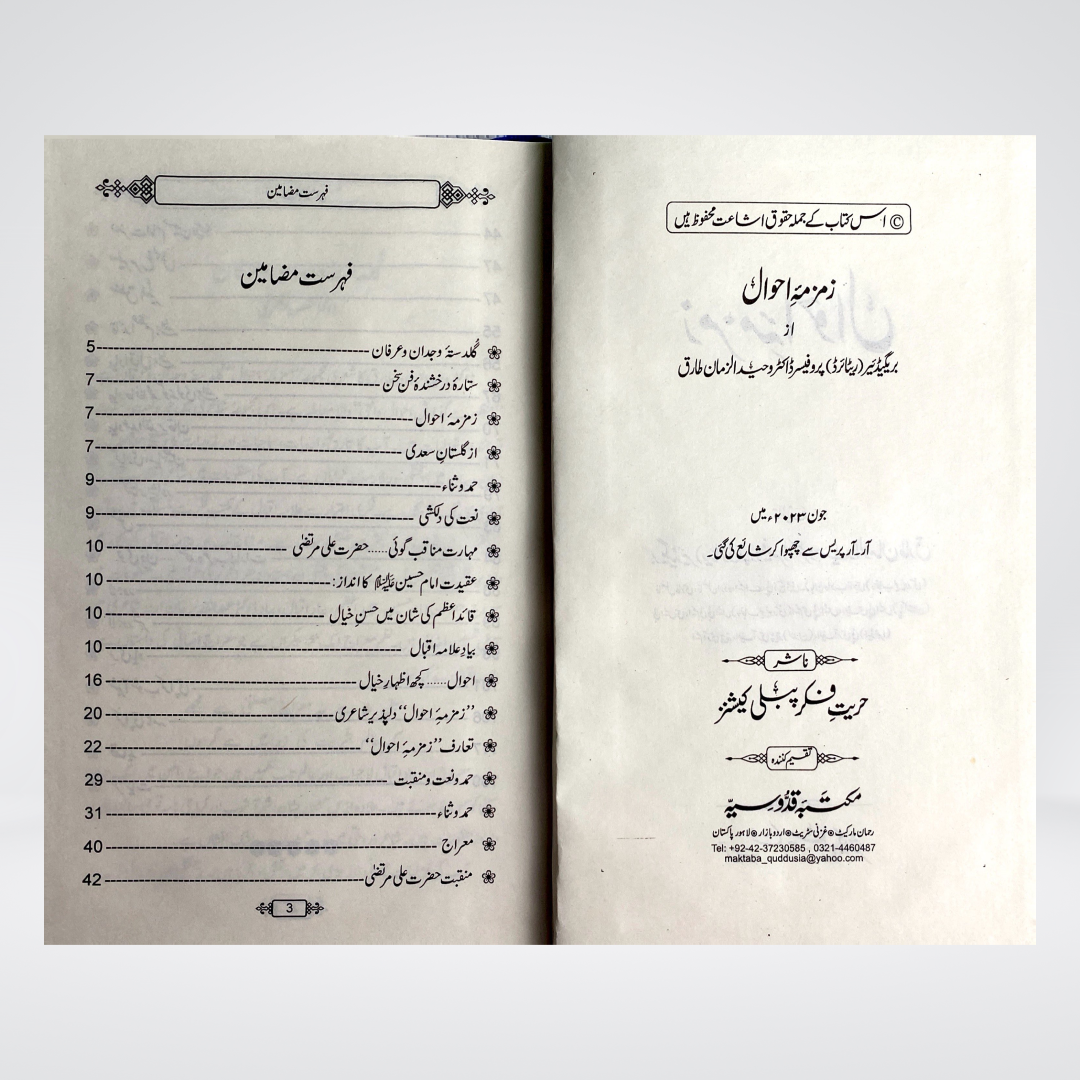 © اس کتاب کے جملہ حقوق اشاعت محفوظ ہیں
زمزمۂ احوال
از
بریگیڈئیر (ریٹائرڈ) پروفیسر ڈاکٹر وحید الزمان طارق
جون ۲۰۲۳ء میں
آر۔آر پریس سے چھپوا کر شائع کی گئی۔
ناشر
حریتِ فکر پبلی کیشنز
تقسیم کنندہ
مکتبہ قدوسیہ
رحمان مارکیٹ ۞ غزنی سٹریٹ ۞ اردو بازار ۞ لاہور پاکستان
Tel: +92-42-37230585 , 0321-4460487
maktaba_quddusia@yahoo.com
فہرست مضامین
فہرست مضامین
گلدستۂ وجدان و عرفان 5
ستارۂ درخشندۂ فن سخن 7
زمزمۂ احوال 7
از گلستانِ سعدی 7
حمد و ثناء 9
نعت کی دلکشی 9
مہارت مناقب گوئی ...... حضرت علی مرتضٰی 10
عقیدت امام حسین علیہ السلام کا انداز: 10
قائداعظم کی شان میں حسنِ خیال 10
بیادِ علامہ اقبال 10
احوال ...... کچھ اظہارِ خیال 16
’’زمزمۂ احوال‘‘ دلپذیر شاعری 20
تعارف ’’زمزمۂ احوال‘‘ 22
حمد و نعت و منقبت 29
حمد و ثناء 31
معراج 40
منقبت حضرت علی مرتضٰی 42
3